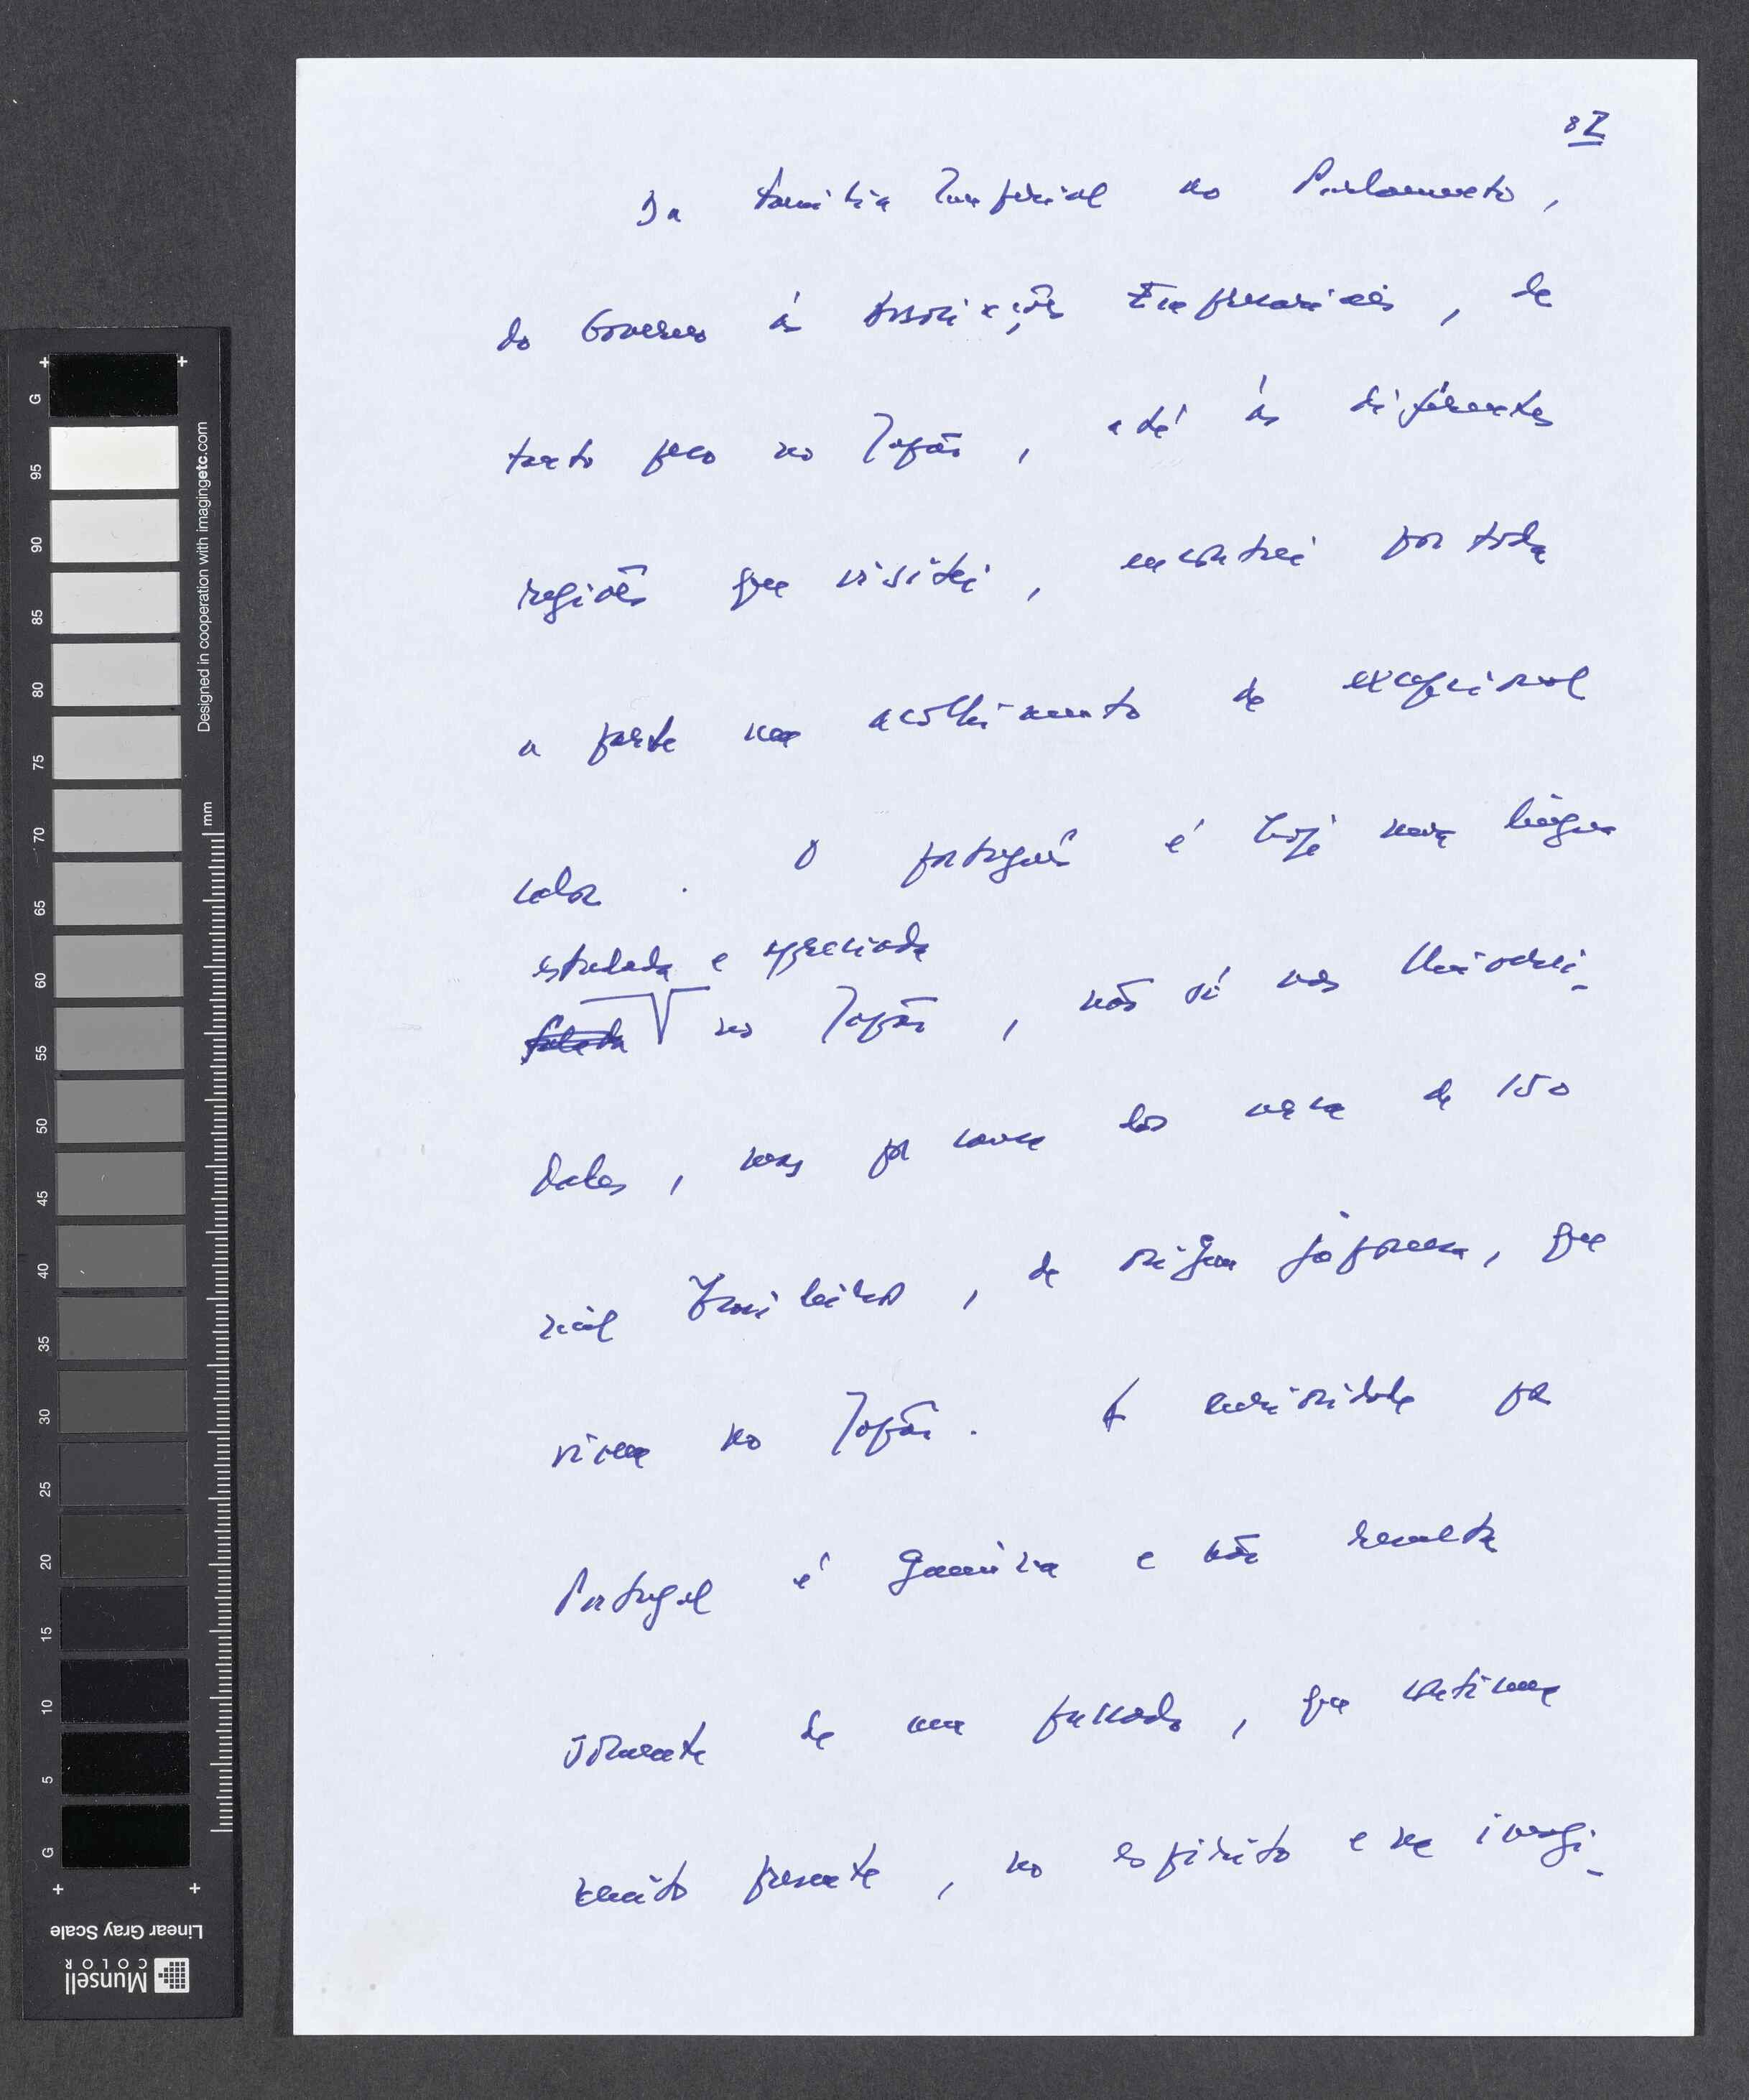 8I
Da Família Imperial ao Parlamento,
do Governo às Associações Empresariais, de
tanto peso no Japão, até às diferentes
regiões que visitei, encontrei por toda
a parte um acolhimento de excepcional
calor. O português é hoje uma língua
estudada e apreciada
falada no Japão, não só nas Universi-
dades, mas por causa dos cerca de 150
mil brasileiros, de origem japonesa, que
vivem no Japão. A curiosidade por
Portugal é genuína e não resulta
somente de um passado, que continua
muito presente, no espírito e na imagi-
G
95
90
85
80
75
70
65
60
55
50
45
40
35
30
25
20
15
10
5
G
mm
Designed in cooperation with imagingetc.com
Linear Gray Scale
Munsell
COLOR